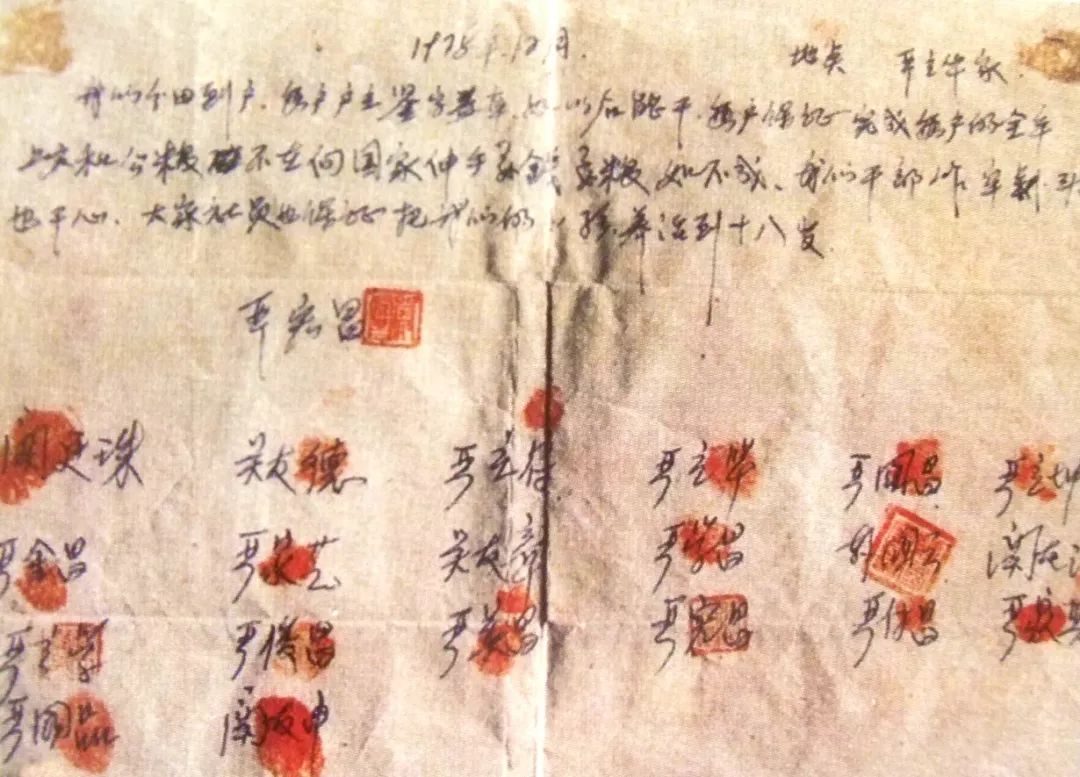 1978年12月. 地点 严立华家.
我们分田到户,每户户主签字盖章,如以后能干,每户保证完成每户的全年
上交和公粮 不在向国家伸手要钱要粮 如不成,我们干部作牢刹头
也干心,大家社员也保证把我们的小孩养活到十八岁.
严宏昌
关廷珠 关友德 严立符 严立华 严国昌 严立坤
严金昌 严家芝 关友章 严学昌 韩国云 关友江
严立学 严俊昌 严美昌 严宏昌 严付昌 严家其
严国品 关友申